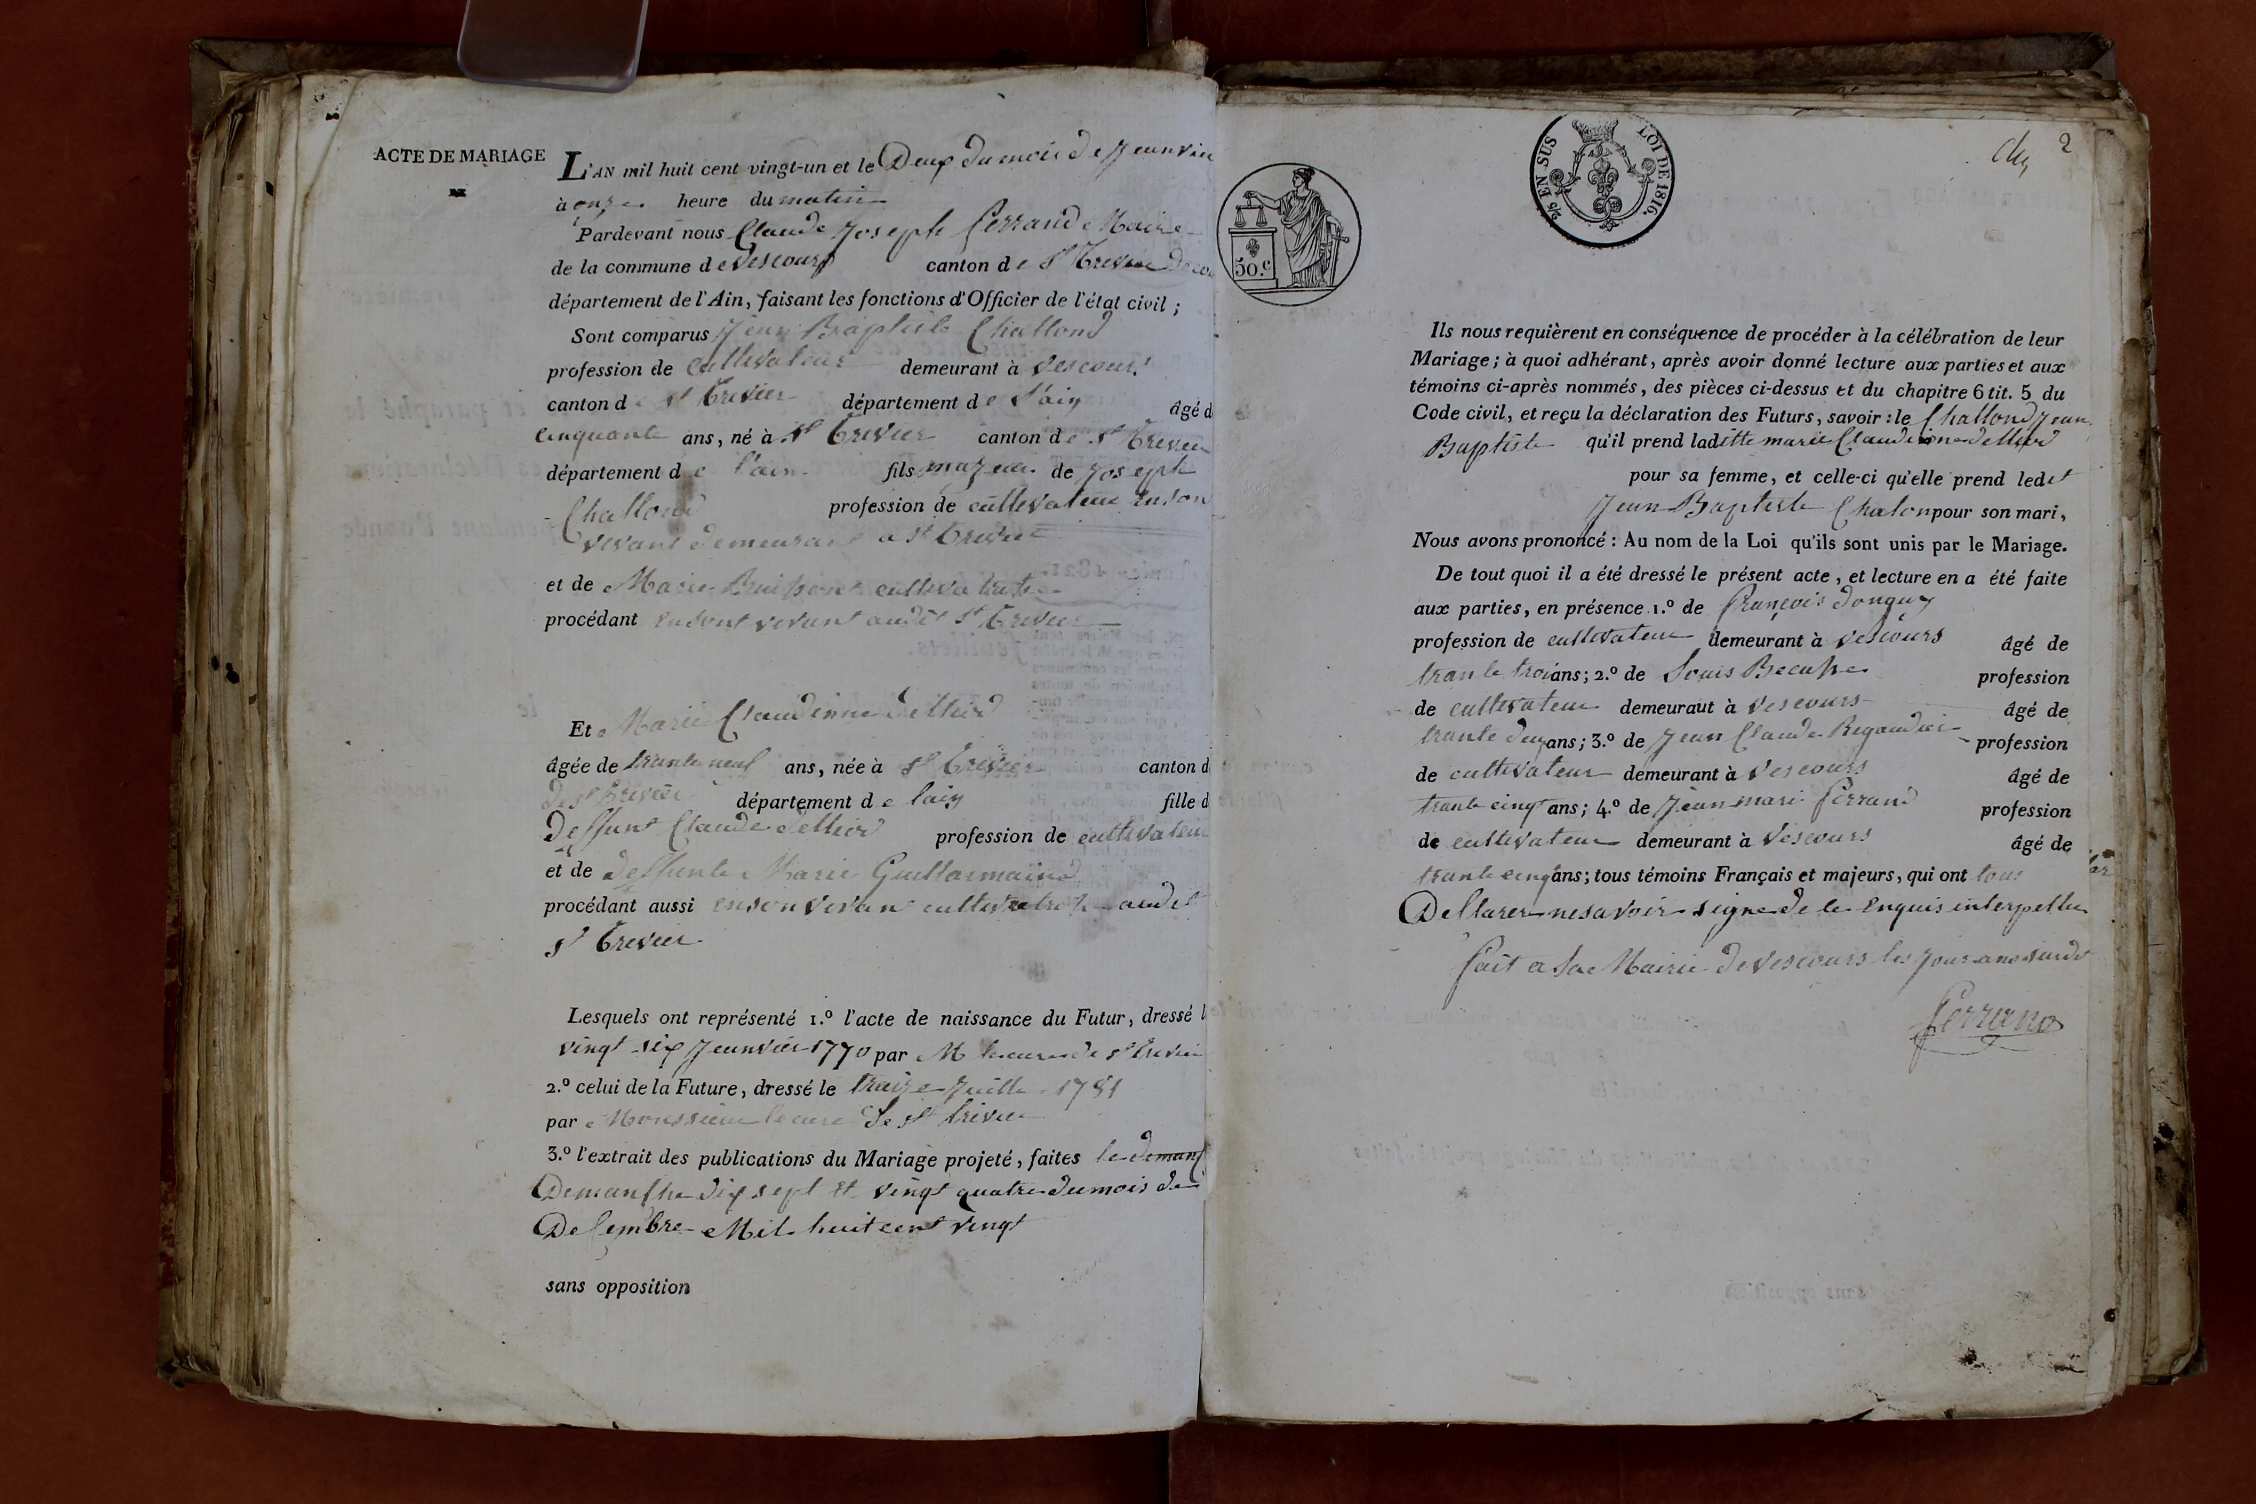 ACTE DE MARIAGE
L'AN mil huit cent vingt-un et le Deux du mois de Jeanvier
à onze heure du matin
Pardevant nous Claude Joseph Ferrand Maire
de la commune de Vescours canton de St Trevier de cou
département de l'Ain, faisant les fonctions d'Officier de l'état civil ;
Sont comparus Jean Baptiste Challond
profession de cultivateur demeurant à Vescours
canton de St Trevier département de l'ain âgé d
cinquante ans, né à St Trevier canton de St Trevier
département de l'ain fils majeur de Joseph
Challond profession de cultivateur en son
vivant demeurant a St Trevier
et de Marie cultivatrice
procédant en sont vivant audit St Trevier
Et Marie Claudinne
âgée de trante neuf ans, née à St Trevier canton d
de St Trevier département de lain fille d
deffunt Claude profession de cultivateur
et de deffunte Marie Guillarmaind
procédant aussi en son vivan cultivatrice audit
St Trevier
Lesquels ont représenté 1.º l'acte de naissance du Futur, dressé l
vingt six Jeanvier 1770 par M le cure de St trevier
2.º celui de la Future, dressé le traize Juille 1781
par Monssieur le cure de St trivier
3.º l'extrait des publications du Mariage projeté, faites le demanf
Demanfhe dix sept et vingt quatre du mois de
Desembre Mil huit cent vingt
sans opposition
2
2/5 EN SUS LOI DE 1816.
50.c
Ils nous requièrent en conséquence de procéder à la célébration de leur
Mariage ; à quoi adhérant, après avoir donné lecture aux parties et aux
témoins ci-après nommés, des pièces ci-dessus et du chapitre 6 tit. 5 du
Code civil, et reçu la déclaration des Futurs, savoir : le Challond Jean
Baptiste qu'il prend laditte marie Claudinne
pour sa femme, et celle-ci qu'elle prend ledit
Jean Baptiste Chalon pour son mari,
Nous avons prononcé : Au nom de la Loi qu'ils sont unis par le Mariage.
De tout quoi il a été dressé le présent acte, et lecture en a été faite
aux parties, en présence 1.º de François donguy
profession de cultivateur demeurant à Vescours âgé de
trante trois ans ; 2.º de Louis profession
de cultivateur demeuraut à Vescours âgé de
trante deux ans ; 3.º de Jean Claude profession
de cultivateur demeurant à Vescours âgé de
trante cinq ans ; 4.º de Jean mari Ferrand profession
de cultivateur demeurant à Vescours âgé de
trante cinq ans ; tous témoins Français et majeurs, qui ont tous
Dellarer ne savoir signe de ce enquis interpellu
Fait a la Mairie de Vescours les jour ans susdit
Ferrand